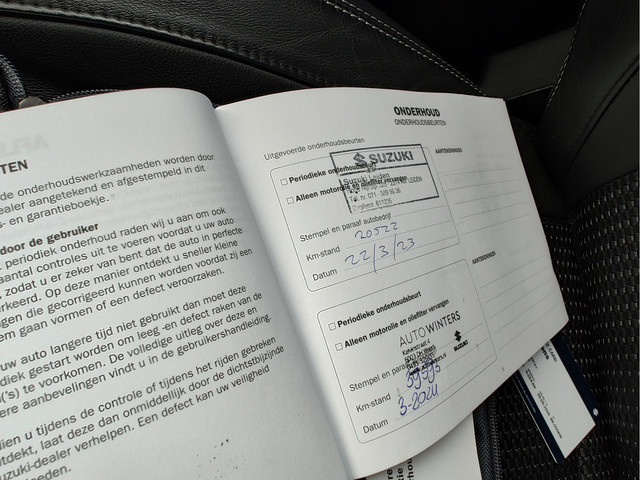 TEN
de onderhoudswerkzaamheden worden door
ealer aangetekend en afgestempeld in dit
- en garantieboekje.
door de gebruiker
periodiek onderhoud raden wij u aan om ook
aantal controles uit te voeren voordat u uw auto
, zodat u er zeker van bent dat de auto in perfecte
verkeerd. Op deze manier ontdekt u sneller kleine
ngen die gecorrigeerd kunnen worden voordat zij een
em gaan vormen of een defect veroorzaken.
uw auto langere tijd niet gebruikt dan moet deze
diek gestart worden om leeg -en defect raken van de
('s) te voorkomen. De volledige uitleg over deze en
ere aanbevelingen vindt u in de gebruikershandleiding.
dien u tijdens de controle of tijdens het rijden gebreken
tdekt, laat deze dan onmiddellijk door de dichtstbijzijnde
uzuki-dealer verhelpen. Een defect kan uw veiligheid
eden.
ONDERHOUD
ONDERHOUDSBEURTEN
Uitgevoerde onderhoudsbeurten
AANTEKENINGEN
Periodieke onderhoudsbeurt
SUZUKI
Suzuki Leiden
Alleen motorolie en oliefilter vervangen
LEIDEN
Tel.nr. 071 - 589 96 36
Stempel en paraaf autobedrijf
Km-stand 20522
Datum 22/3/23
AANTEKENINGEN
Periodieke onderhoudsbeurt
Alleen motorolie en oliefilter vervangen
AUTOWINTERS
SUZUKI
Stempel en paraaf
Km-stand
Datum 3-2024